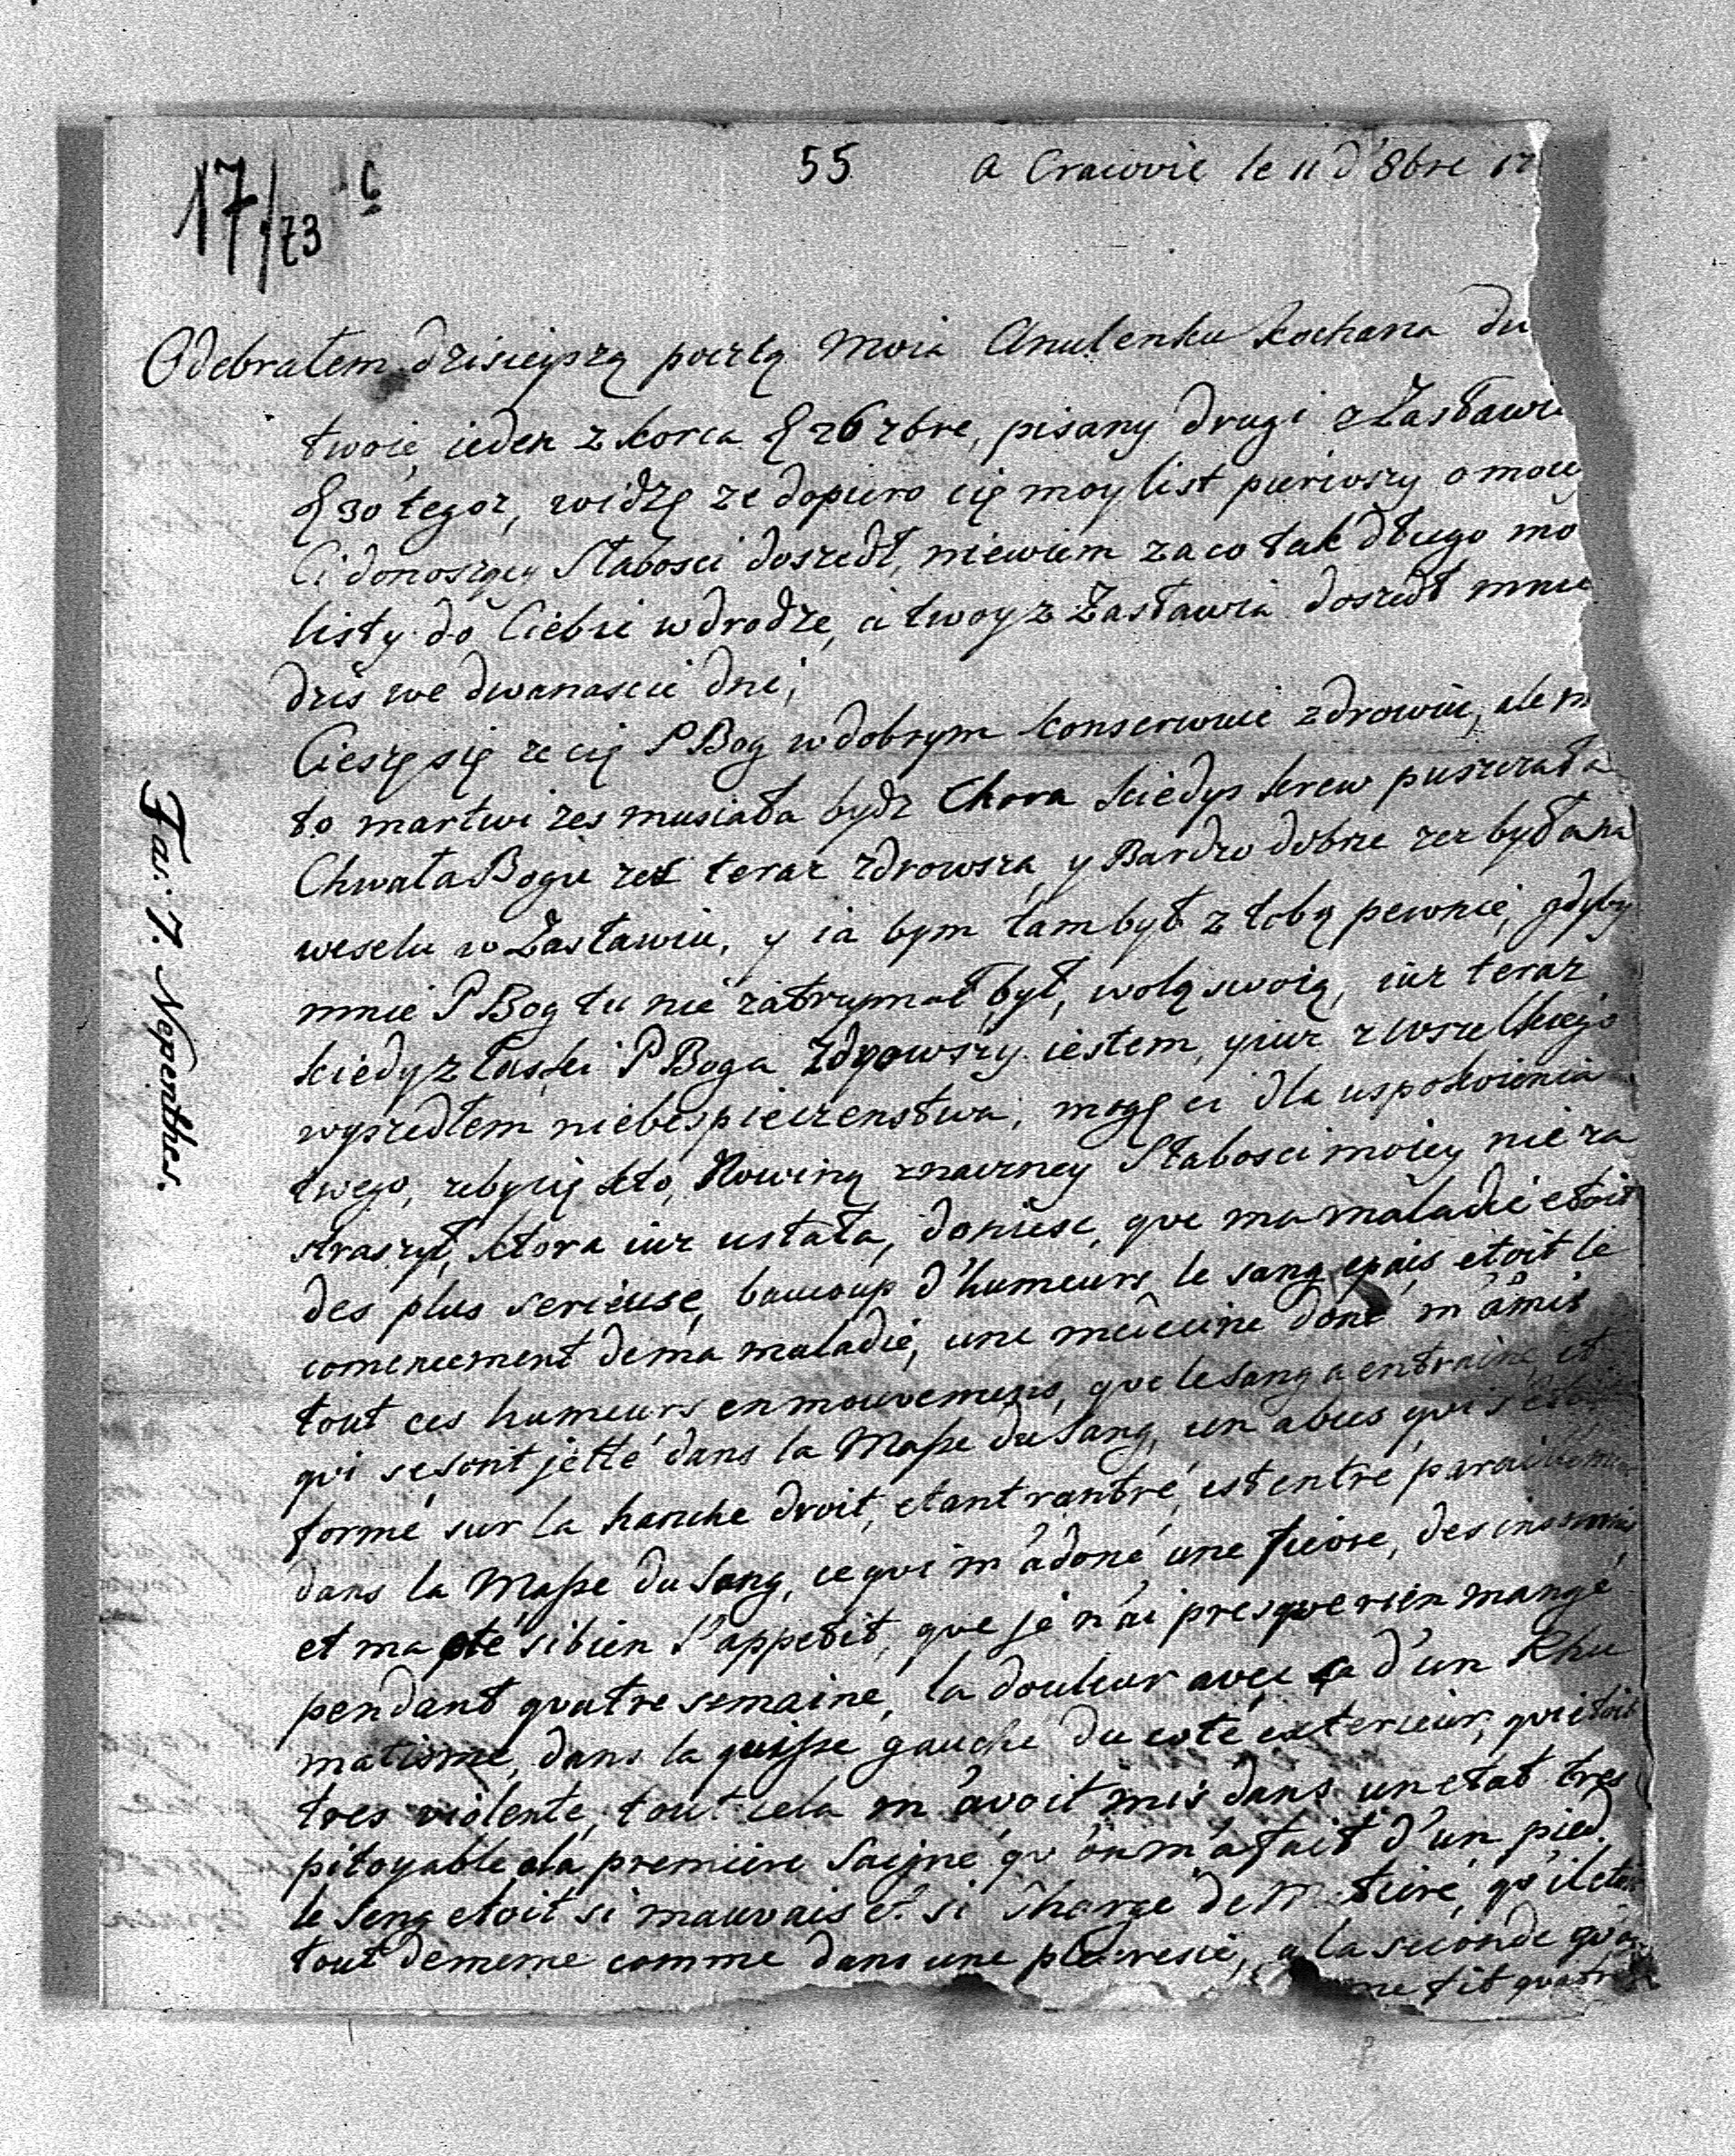 17/73 c
55
a Cracovie le 11 d'8bre 17
Odebrałem dzisieyszą pocztą Moia Anulenku kochana du
twoie, ieden z korca d 26 7bre, pisany drugi z Zasławi
d 30 tegoz, widzę ze dopiero cię moy list pierwszy o moiey
Ci donoszący Słabosci doszedł, niewiem zaco tak długo mo
listy do Ciebie w drodze, a twoy z Zasławia doszedł mnie
dziś we dwanascie dni,
Cieszę się ze cię P Bog w dobrym konserwuie zdrowiu, ale m
to martwi zes musiała bydz Chora kiedys krew puszczała
Chwała Bogu zes teraz zdrowsza, y Bardzo dobrze zez była na
weselu w Zasławiu, y ia bym tam był z tobą pewnie, gdyby
mnie P Bog tu nie zatrzymał był, wolą swoią, iuz teraz
kiedy z łaski P Boga Zdrowszy iestem, y iuz z wszelkiego
wyszedłem niebespieczenstwa, mogę ci dla uspokoienia
twego, zebycię kto, Nowiną znaczney Słabosci moiey nie za
straszył, ktora iuz ustała, doniesc, que ma maladie etoit
des plus serieuse, baucoup d'humeurs, le sang epais etoit le
comencement de ma maladie, une medecine done m'a mis
tout ces humeurs en mouvemens, que le sang a entrainé, et
qui se sont jetté dans la Masse du Sang, un abces qui s'etoit
formé sur la hanche droit, etant rentré, est entré pareillement
dans la Masse du Sang, ce qui m'a doné une fievre, des insomnies
et ma oté si bien l'appetit, que je n'ai presque rien mangé
pendant quatre semaine, la douleur avec ça d'un Rhu
matisme, dans la quisse gauche du coté exterieur, qui etoit
tres violente, tout cela m'avoit mis dans un etat tres
pitoyable, a la premiere Saigné qu'on m'a fait d'un pied,
le Seng etoit si mauvais & si Charge de M tiere, qu'il etoit
tout de meme comme dans une pleuresie, a la seconde qu'on
me fit quatre
Fas: 7. Nepenthes.